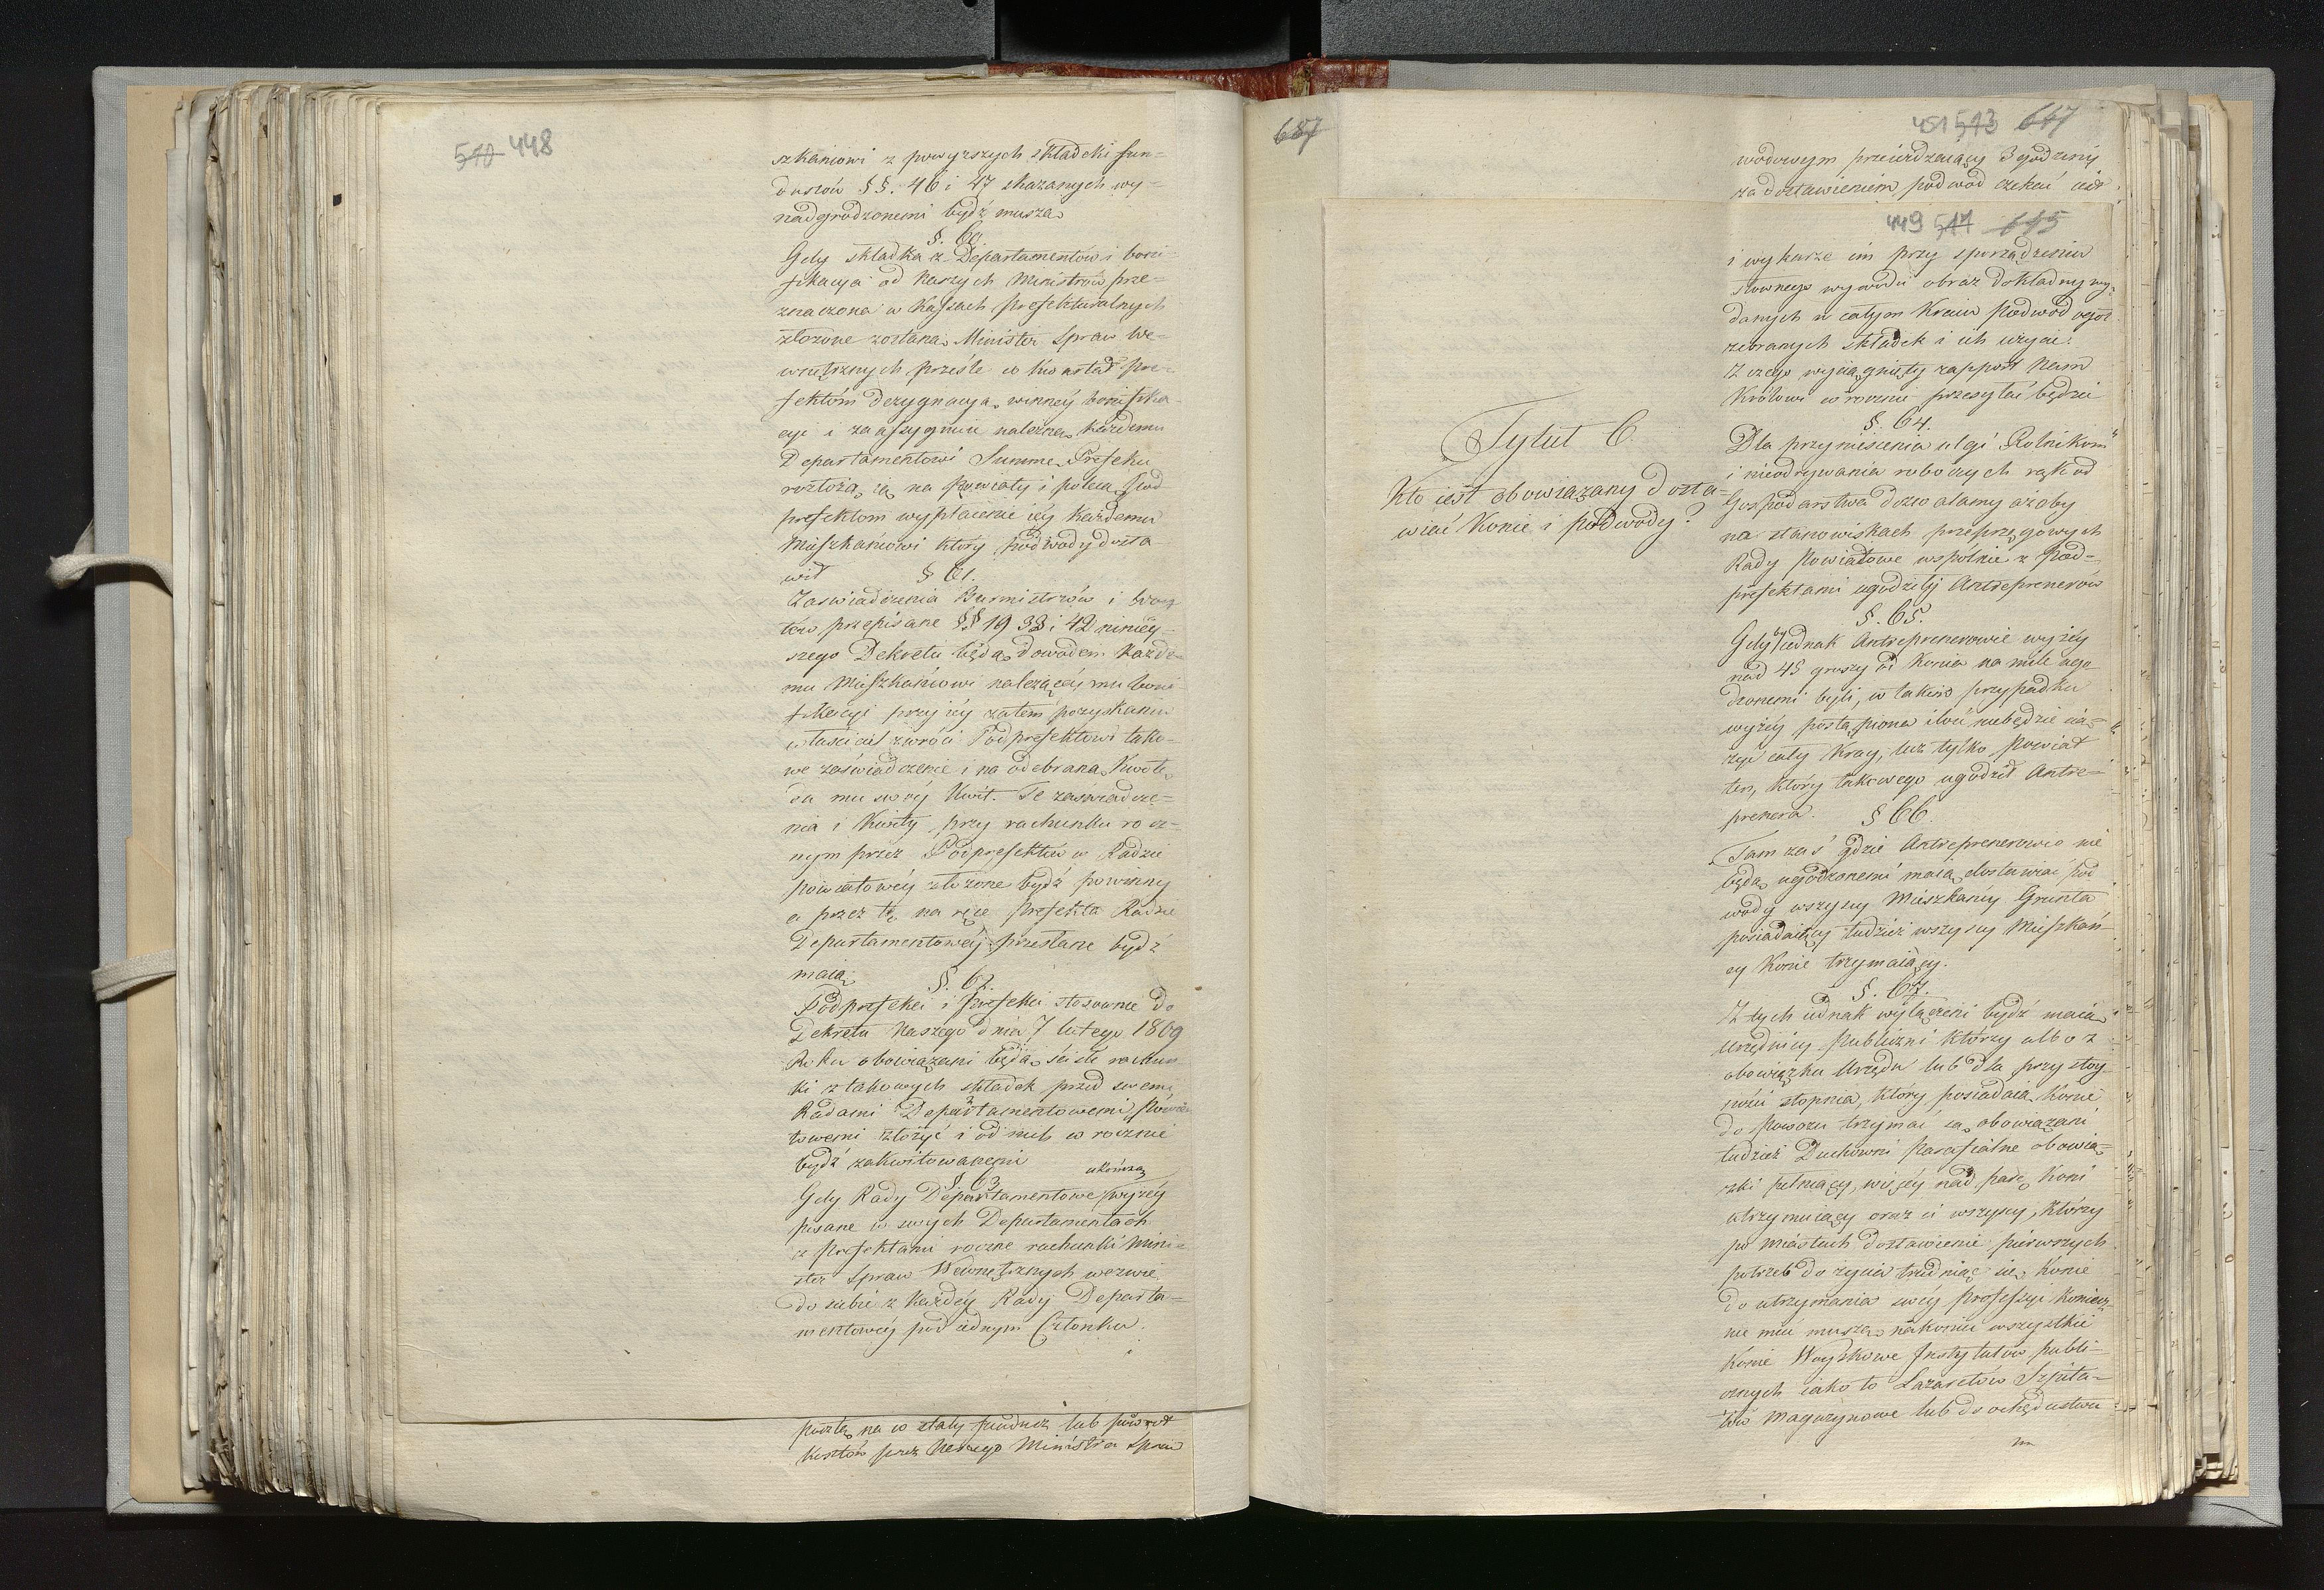 510 448
szkańcowi z powyższych składki fun=
duszów §§. 46 i 47 skazanych wy=
nadgrodzonemi bydź muszą
§. 60.
Gdy składka z Departamentów i boni=
fikacya od Naszych Ministrów prze=
znaczona w Kassach Prefekturalnych
złożone zostaną Minister Spraw We=
wnętrznych prześle co kwartał Pre=
fektóm dezygnacyą winney bonifika=
cyi i zaassygnuie należną każdemu
Departamentowi Summę. Prefekci
rozłożą ią na Powiaty i polecą Pod
prefektom wypłacenie iéy każdemu
Mieszkańcowi który podwody dosta
wił
§ 61.
Zaświadczenia Burmistrzów i Woy
tów przepisane §§ 19 33 i 42 ninieÿ=
szego Dekretu będą dowodem każde=
mu Mieszkańcowi należącéy mu boni=
fikacyi przy iéy zatem pozyskaniu
właściciel zwróci Podprefektowi tako=
we zaświadczenie i na odebraną Kwotę
da mu swóy Kwit. Te zaświadcze=
nia i Kwity przy rachunku rocz=
nym przez Podprefektów w Radzie
powiatowéy złożone bydź powinny
a przez tę na ręce Prefekta Radzie
Departamentowéy przesłane bydź
maią
§. 62.
Podprefekci i Prefekci stosownie do
Dekretu Naszego dnia 7 lutego 1809
Roku obowiązani będą ściśle rachun
ki z takowych składek przed swemi
Radami Departamentowemi, Powia
towemi złożyć i od nich w rocznie
bydź zakwitowanemi
§ 63.
ukończą
Gdy Rady Departamentowe wyżéy
pisane w swych Departamentach
z Prefektami roczne rachunki Mini=
ster Spraw Wewnętrznych wezwie
do siebie z każdéy Rady Departa=
mentowéy pod iednym Członku.
pocztę na w stały fundusz lub powrot
kosztów przez Naszego Ministra Spraw
687
451 513 617
wodowym przeierdzaiący 3 godziny
za dostawieniem podwod czekać się
449 511 615
i wykaże im przy sporządzeniu
stownego wywodu obraz dokładny wy=
danych w całym Kraiu Podwod ogół
zebranych składek i ich użycie.
Z czego wyciągnięty rapport Nam
Królowi w rocznie przesyłać będzie
§. 64.
Tytuł 6.
Kto iest obowiązany dosta=
wiać Konie i podwody?
Dla przyniesienia ulgi Rolnikom
i nieodrywania roboczych rąk od
Gospodarstwa dozwalamy ażeby
na stanowiskach przeprzęgowych
Rady Powiatowe wspólnie z Pod=
prefektami ugodziły Antreprenerów
§. 65.
Gdyby iednak Antreprenerowie wyżéy
nad 45 groszy od Konia na milę ugo=
dzonemi byli, w takim przypadku
wyżéy postąpiona ilość niebędzie cią=
żyć cały Kray, lecz tylko Powiat
ten, który takowego ugodził Antre=
prenera.
§ 66.
Tam zaś gdzie Antreprenerowie nie
będą ugodzonemi maią dostawiać pod
wody wszyscy Mieszkańcy Grunta
posiadaiący tudzież wszyscy Mieszkań=
cy Konie trzymaiący.
§. 67.
Z tych iednak wyłączeni bydź maią
Urzędnicy Publiczni którzy albo z
obowiązku Urzędu lub dla przystoy
ności stopnia, który posiadaią Konie
do Powozu trzymać są obowiązani
tudzież Duchowni Parafialne obowią=
zki pełniący, więcéy nad parę Koni
utrzymuiący oraz ci wszyscy, którzy
po Miastach dostawienie pierwszych
potrzeb do życia trudniąc się Konie
do utrzymania swéy professyi koniecz
nie mieć muszą, nakoniec wszystkie
Konie Woyskowe Instytutów publi=
cznych iako to Lazaretów Szpita=
lów Magazynowe lub do ochędustwa